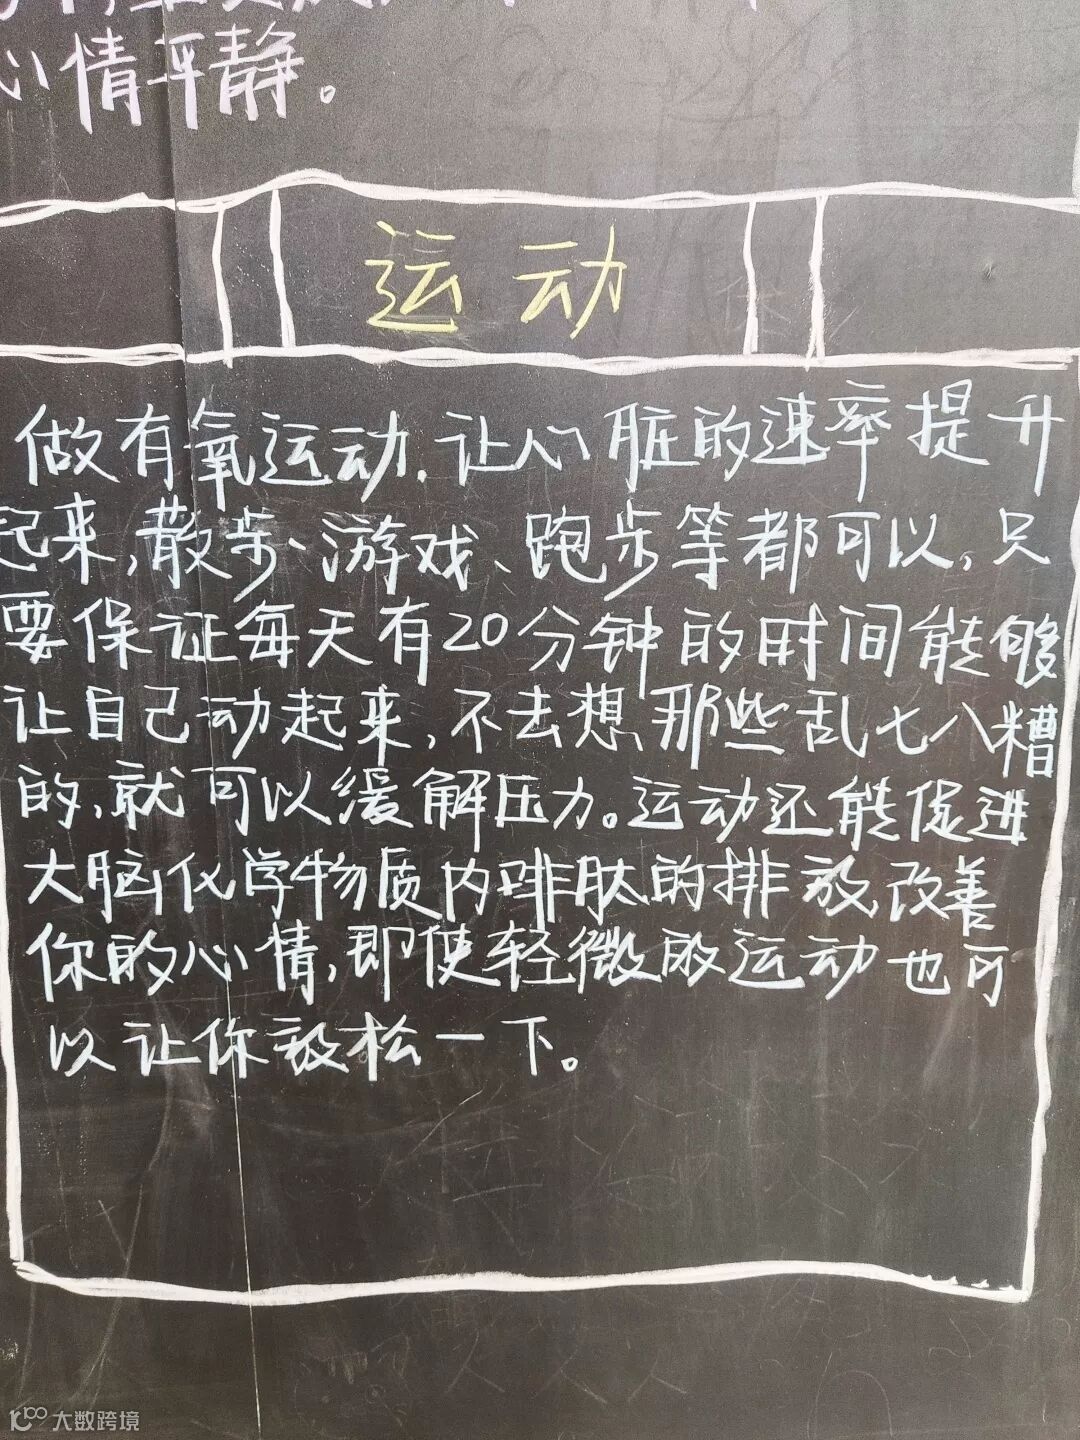 心情平静。
运动
做有氧运动.让心脏的速率提升
起来,散步、游戏、跑步等都可以,只
要保证每天有20分钟的时间能够
让自己动起来,不去想那些乱七八糟
的,就可以缓解压力。运动还能促进
大脑化学物质内啡肽的排放,改善
你的心情,即使轻微的运动也可
以让你放松一下。
大数跨境